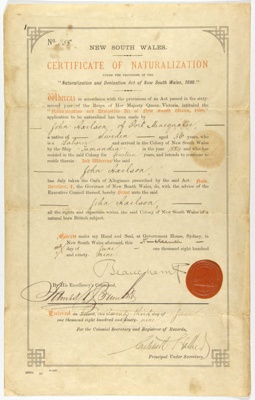 No.
NEW SOUTH WALES.
CERTIFICATE OF NATURALIZATION
UNDER THE PROVISIONS OF THE
"Naturalization and Denization Act of New South Wales, 1898."
Whereas in accordance with the provisions of an Act passed in the sixty-
second year of the Reign of Her Majesty Queen Victoria, intituled the
application to be naturalized has been made by
John Karlson, of Port Macquarie
a native of Sweden aged years, who
is a and arrived in the Colony of New South Wales
by the Ship in the year and having
resided in the said Colony for years, and intends to continue to
reside therein: And Whereas the said
John Karlson
has duly taken the Oath of Allegiance prescribed by the said Act: Now
therefore, I, the Governor of New South Wales, do, with the advice of the
Executive Council thereof, hereby grant unto the said
John Karlson,
all the rights and capacities within the said Colony of New South Wales of a
natural born British subject.
Witness my Hand and Seal, at Government House, Sydney, in
New South Wales aforesaid, this
day of June one thousand eight hundred
and ninety nine
Beauchamp
By His Excellency's Command,
Entered on Record
one thousand eight hundred and ninety-nine
For the Colonial Secretary and Registrar of Records,
Principal Under Secretary.